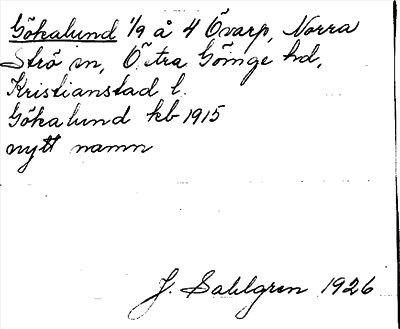 Gökalund 1/9 å 4 Övarp, Norra
Strö sn, Östra Göinge hd,
Kristianstad l.
Gökalund kb 1915
nytt namn
J. Sahlgren 1926